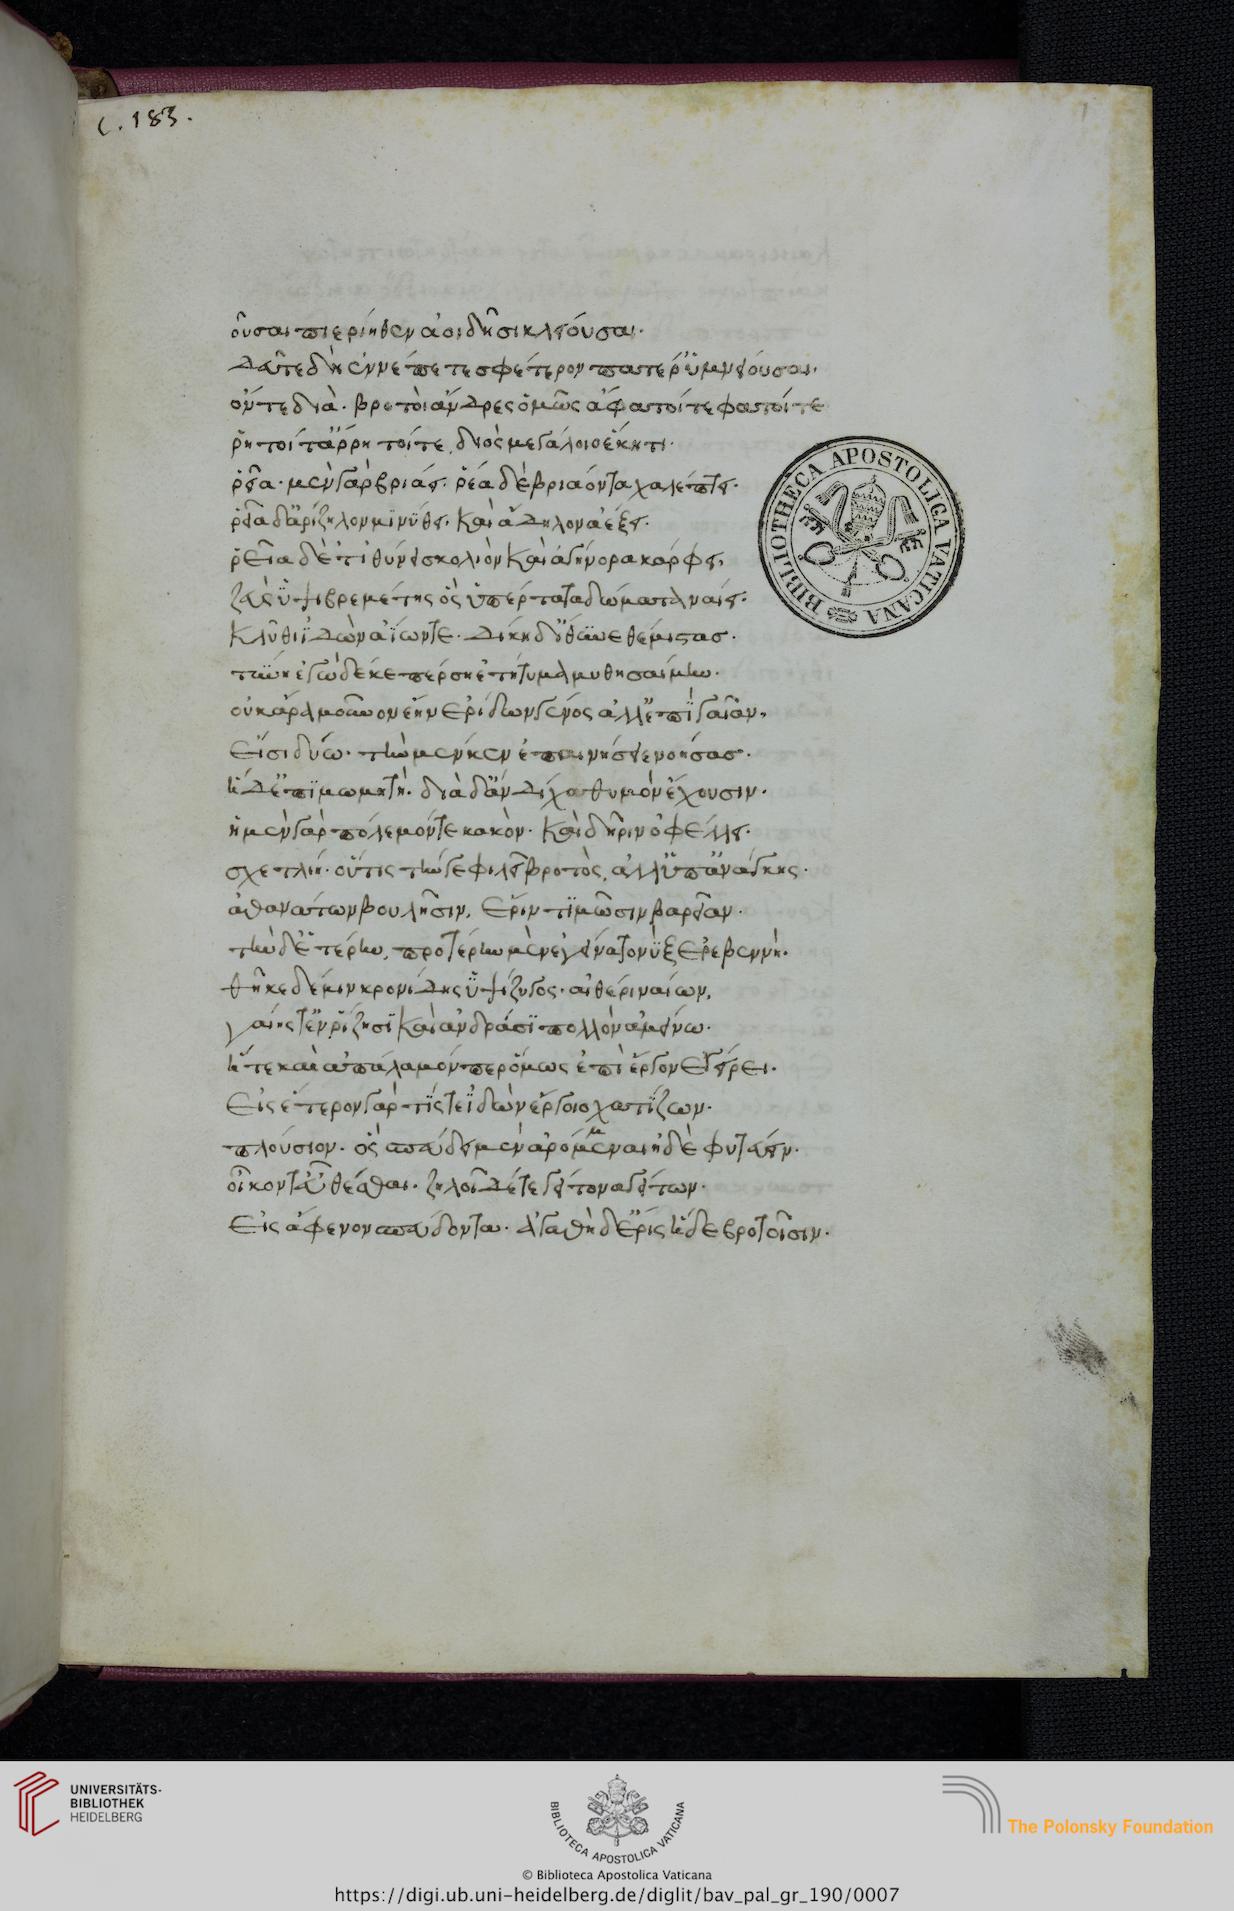 C. 183.
1
οῦσαι πιερίηθεν ἀοιδῆσι κλείουσαι.
Δεῦτε δὴ ἐννέπετε σφέτερον πατέρ' ὑμνείουσαι.
ὅν τε διὰ. βροτοὶ ἄνδρες ὁμῶς ἄφατοί τε φατοί τε
ῥητοί τ' ἄρρητοί τε, διὸς μεγάλοιο ἕκητι.
ῥεῖα. μὲν γὰρ βριάει. ῥέα δὲ βριάοντα χαλέπτει.
ῥεῖα δ' ἀρίζηλον μινύθει. καὶ ἄδηλον ἀέξει.
ῥεῖα δέ τ' ἰθύνει σκολιὸν καὶ ἀγήνορα κάρφει,
ζεὺς ὑψιβρεμέτης ὃς ὑπέρτατα δώματα ναίει.
κλῦθι ἰδὼν ἀΐων τε. Δίκη δ' ἴθυνε θέμιστας.
τύνη ἐγὼ δέ κε πέρση ἐτήτυμα μυθησαίμην.
οὐκ ἄρα μοῦνον ἔην ἐρίδων γένος ἀλλ' ἐπὶ γαῖαν,
εἰσὶ δύω. τὴν μέν κεν ἐπαινήσειε νοήσας.
ἡ δ' ἐπιμωμητή. διὰ δ' ἄνδιχα θυμὸν ἔχουσιν.
ἡ μὲν γὰρ πόλεμόν τε κακὸν. καὶ δῆριν ὀφέλλει.
σχετλίη. οὔτις τήν γε φιλεῖ βροτὸς, ἀλλ' ὑπ' ἀνάγκης.
ἀθανάτων βουλῆσιν, ἔριν τιμῶσιν βαρεῖαν.
τὴν δ' ἑτέρην, προτέρην μὲν ἐγείνατο νὺξ ἐρεβεννή.
θῆκε δέ μιν κρονίδης ὑψίζυγος. αἰθέρι ναίων,
γαίης τ' ἐν ῥίζησι καὶ ἀνδράσι πολλὸν ἀμείνω.
ἥτε καὶ ἀπάλαμόν περ ὅμως ἐπὶ ἔργον ἐγείρει.
εἰς ἕτερον γάρ τίς τε ἰδὼν ἔργοιο χατίζων.
πλούσιον. ὃς σπεύδει μὲν ἀρόμμεναι ἠδὲ φυτεύειν.
οἶκόν τ' εὖ θέσθαι. ζηλοῖ δέ τε γείτονα γείτων.
εἰς ἄφενον σπεύδοντα. ἀγαθὴ δ' ἔρις ἥδε βροτοῖσιν.
BIBLIOTHECA APOSTOLICA VATICANA
UNIVERSITÄTS-
BIBLIOTHEK
HEIDELBERG
BIBLIOTECA APOSTOLICA VATICANA
The Polonsky Foundation
© Biblioteca Apostolica Vaticana
https://digi.ub.uni-heidelberg.de/diglit/bav_pal_gr_190/0007